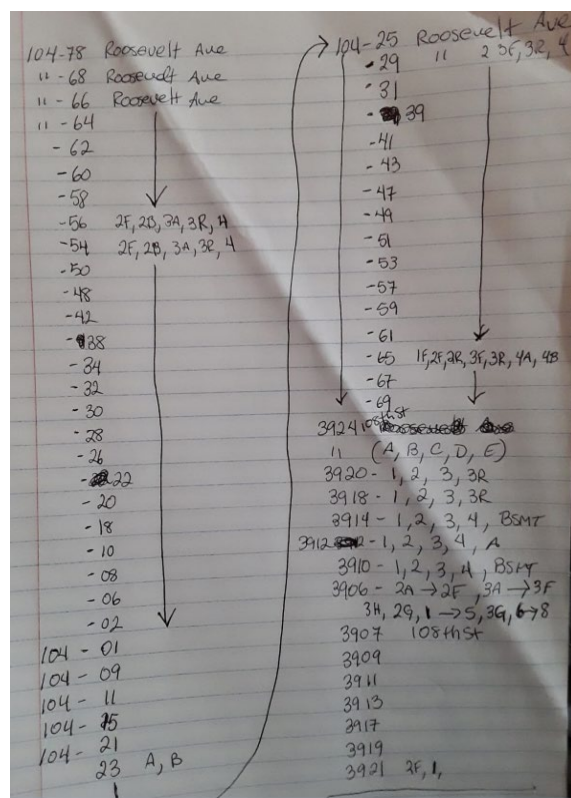 104-78 Roosevelt Ave
11-68 Roosevelt Ave
11-66 Roosevelt Ave
11-64
-62
-60
-58
-56 2F, 2B, 3A, 3R, 4
-54 2F, 2B, 3A, 3R, 4
-50
-48
-42
-38
-34
-32
-30
-28
-26
-22
-20
-18
-10
-08
-06
-02
104-01
104-09
104-11
104-15
104-21
23 A, B
104-25 Roosevelt Ave
-29 11 2 3F, 3R, 4
-31
-39
-41
-43
-47
-49
-51
-53
-57
-59
-61
-65 1F, 2F, 2R, 3F, 3R, 4A, 4B
-67
-69
3924 108th St
11 (A, B, C, D, E)
3920 - 1, 2, 3, 3R
3918 - 1, 2, 3, 3R
3914 - 1, 2, 3, 4, BSMT
3912 - 1, 2, 3, 4, A
3910 - 1, 2, 3, 4, BSMT
3906 - 2A → 2F, 3A → 3F
3H, 2G, 1 → 5, 3G, 6 → 8
3907 108th St
3909
3911
3913
3917
3919
3921 2F, 1,